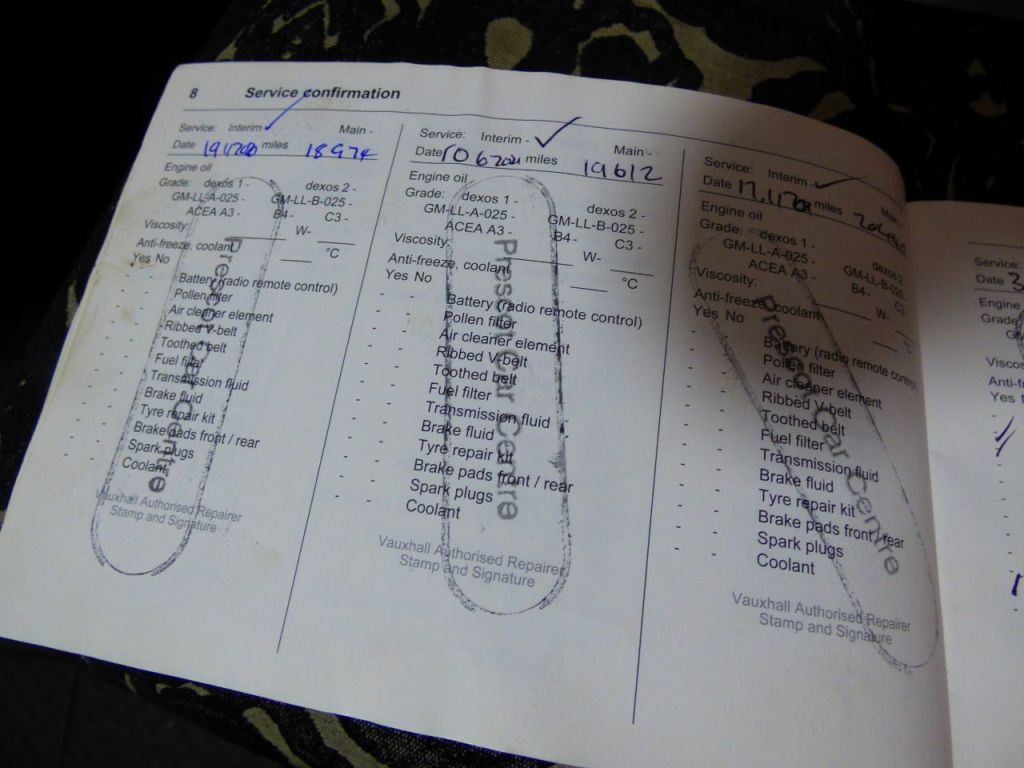 8 Service confirmation
Service: Interim - ✓ Main -
Date miles 18974
Engine oil
Grade: dexos 1 - dexos 2 -
GM-LL-A-025 - GM-LL-B-025 -
ACEA A3 - B4 - C3 -
Viscosity: W-
Anti-freeze, coolant °C
Yes No
Battery (radio remote control)
Pollen filter
Air cleaner element
Ribbed V-belt
Toothed belt
Fuel filter
Transmission fluid
Brake fluid
Tyre repair kit
Brake pads front / rear
Spark plugs
Coolant
Vauxhall Authorised Repairer
Stamp and Signature
Prescot Car Centre
Service: Interim - ✓ Main -
Date miles 19612
Engine oil
Grade: dexos 1 - dexos 2 -
GM-LL-A-025 - GM-LL-B-025 -
ACEA A3 - B4 - C3 -
Viscosity: W-
Anti-freeze, coolant °C
Yes No
Battery (radio remote control)
Pollen filter
Air cleaner element
Ribbed V-belt
Toothed belt
Fuel filter
Transmission fluid
Brake fluid
Tyre repair kit
Brake pads front / rear
Spark plugs
Coolant
Vauxhall Authorised Repairer
Stamp and Signature
Prescot Car Centre
Service: Interim - ✓
Date miles
Engine oil
Grade: dexos 1 - dexos 2 -
GM-LL-A-025 - GM-LL-B-025 -
ACEA A3 - B4 - C3 -
Viscosity: W-
Anti-freeze, coolant °C
Yes No
Battery (radio remote control)
Pollen filter
Air cleaner element
Ribbed V-belt
Toothed belt
Fuel filter
Transmission fluid
Brake fluid
Tyre repair kit
Brake pads front / rear
Spark plugs
Coolant
Vauxhall Authorised Repairer
Stamp and Signature
Prescot Car Centre
Service:
Date 3
Engine
Yes